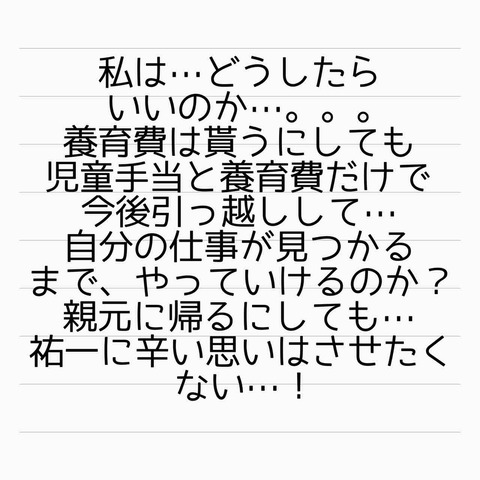 私は…どうしたら
いいのか…。。。
養育費は貰うにしても
児童手当と養育費だけで
今後引っ越しして…
自分の仕事が見つかる
まで、やっていけるのか？
親元に帰るにしても…
祐一に辛い思いはさせたく
ない…！